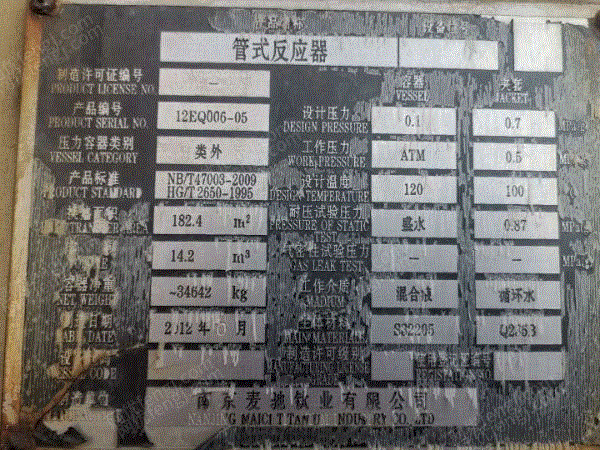 管式反应器
制造许可证编号
PRODUCT LICENSE NO.
—
容器
VESSEL
夹套
JACKET
产品编号
PRODUCT SERIAL NO.
12EQ006-05
设计压力
DESIGN PRESSURE
0.1
0.7
压力容器类别
VESSEL CATEGORY
类外
工作压力
WORK PRESSURE
ATM
0.5
产品标准
PRODUCT STANDARD
NB/T47003-2009
HG/T 2650-1995
设计温度
DESIGN TEMPERATURE
120
100
182.4 m²
耐压试验压力
PRESSURE OF STATIC TEST
盛水
0.87
14.2 m³
气密性试验压力
GAS LEAK TEST
—
—
容器净重
NET WEIGHT
~34642 kg
工作介质
MADIUM
混合液
循环水
日期
DATE
2012年6月
主体材料
MAIN MATERIAL
S32205
制造许可级别
MANUFACTURING LICENSE
CODE
制造单位
南京麦驰钛业有限公司
NANJING MAICI TITANIU INDUSTRY CO.,LTD